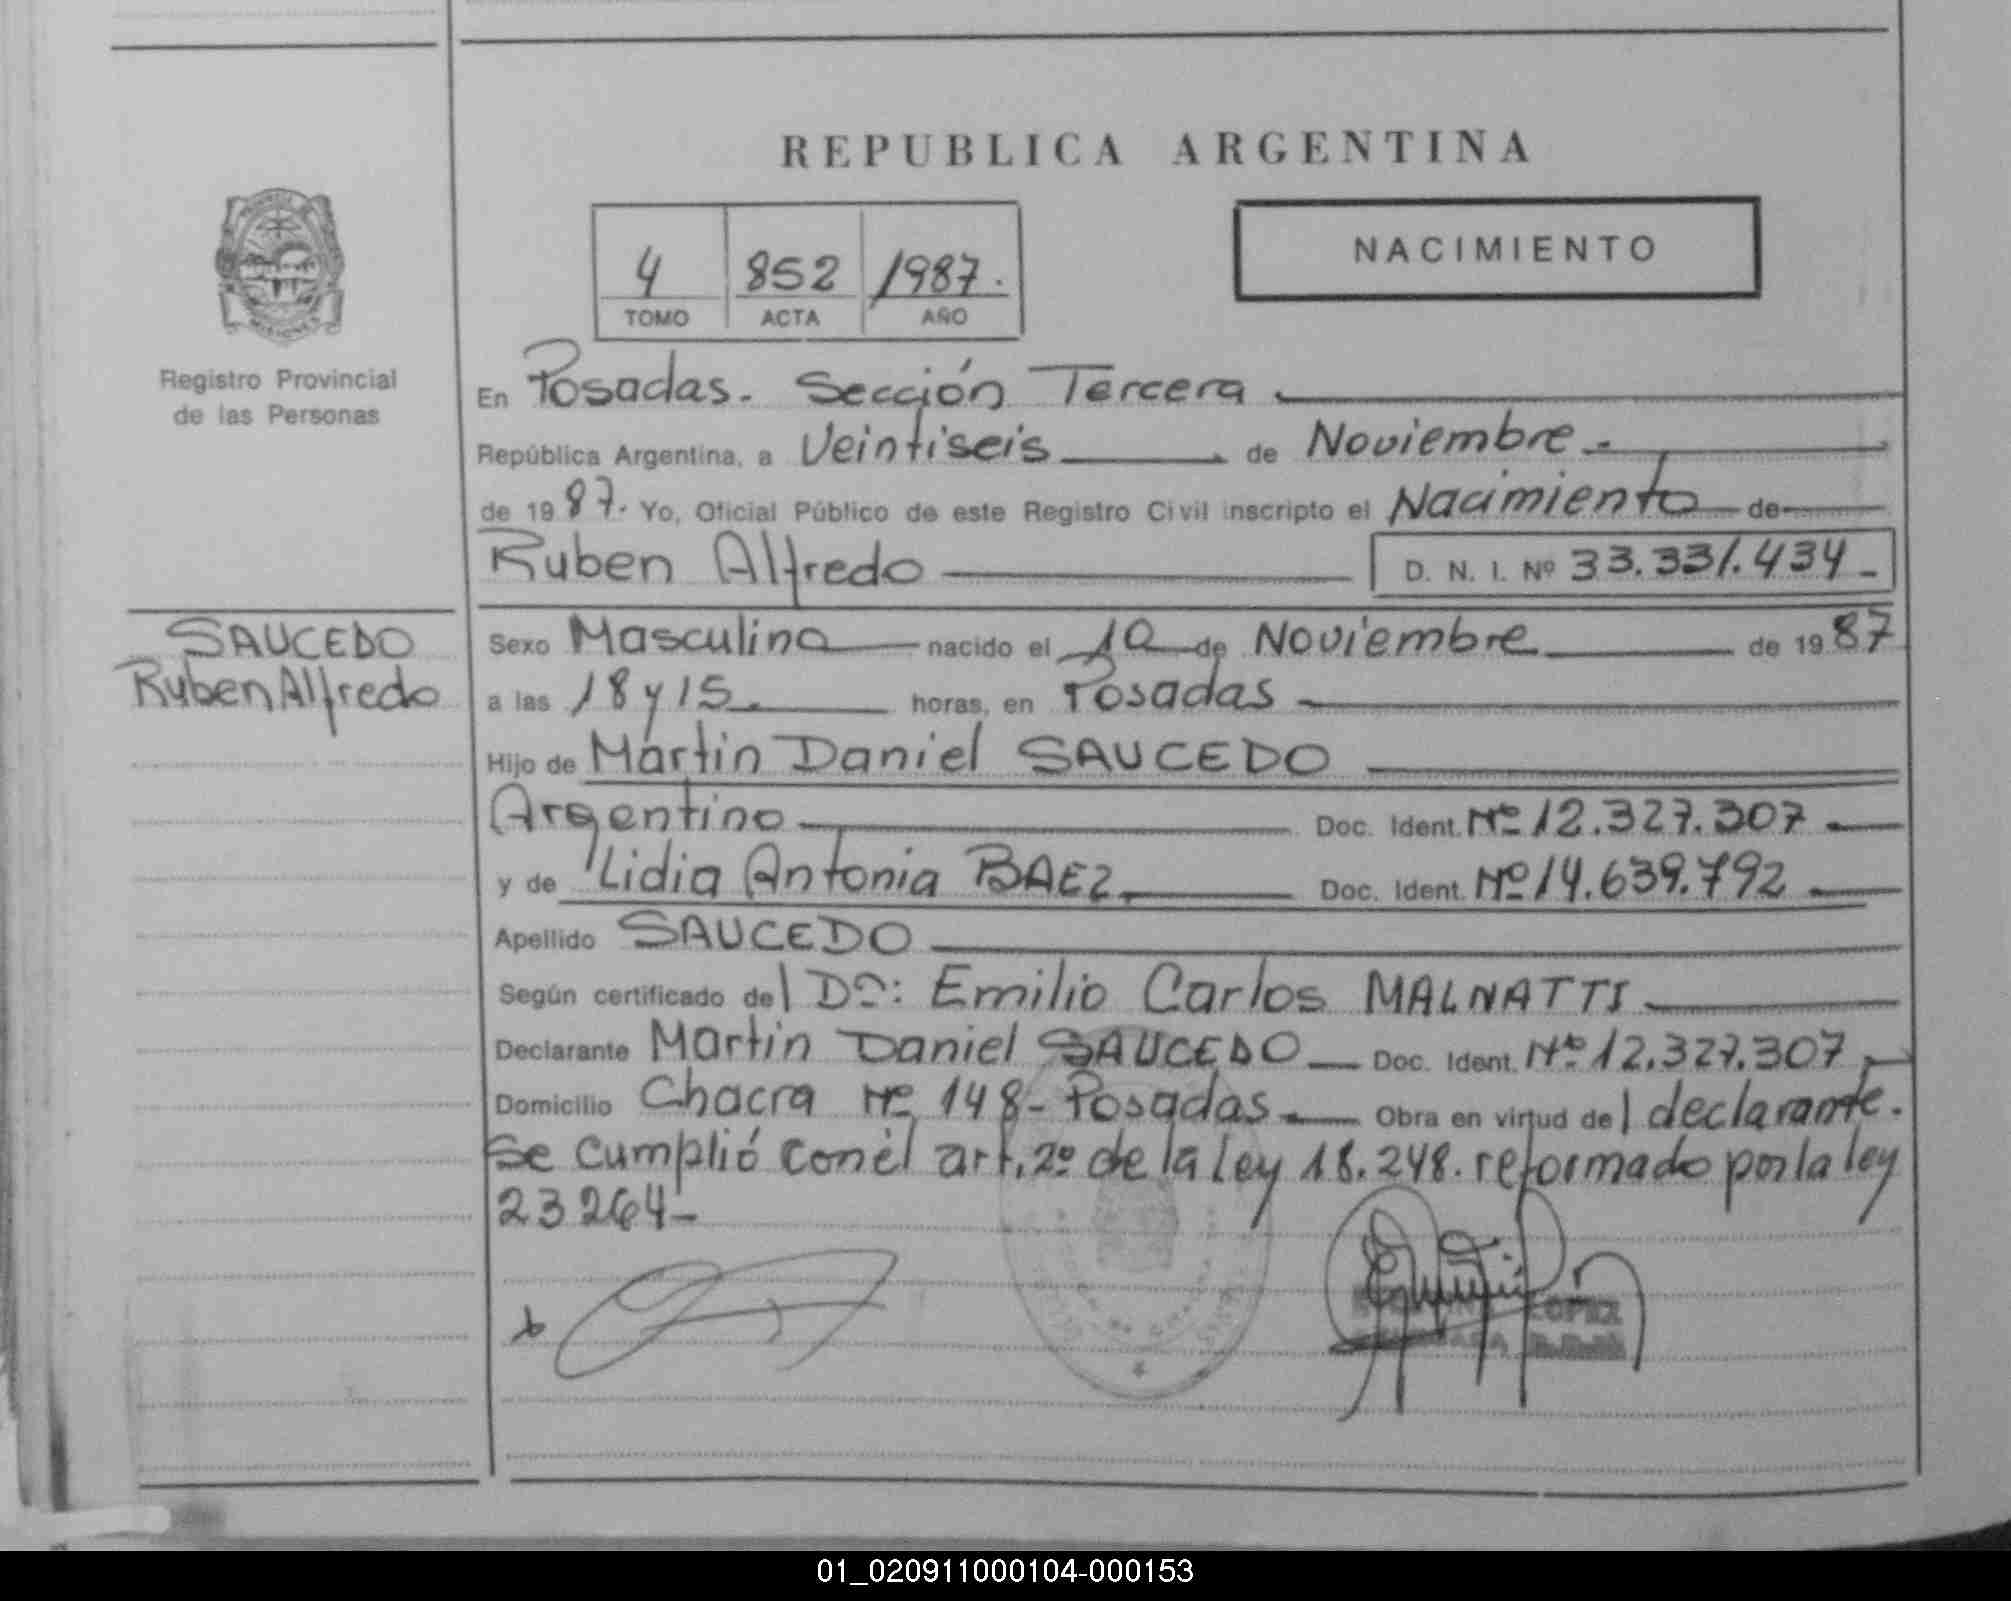 REPUBLICA ARGENTINA
NACIMIENTO
4 852 1987.
TOMO ACTA AÑO
MISIONES
Registro Provincial
de las Personas
En Posadas. Sección Tercera
República Argentina, a Veintiseis de Noviembre.
de 1987. Yo, Oficial Público de este Registro Civil inscripto el Nacimiento de
Ruben Alfredo D. N. I. Nº 33.331.434
SAUCEDO
Ruben Alfredo
Sexo Masculino nacido el 10 de Noviembre de 1987
a las 18 y 15. horas, en Posadas
Hijo de Martin Daniel SAUCEDO
Argentino Doc. Ident. Nº 12.327.307
y de Lidia Antonia BAEZ Doc. Ident. Nº 14.639.792
Apellido SAUCEDO
Según certificado del Dº: Emilio Carlos MALNATTI
Declarante Martin Daniel SAUCEDO Doc. Ident. Nº 12.327.307
Domicilio Chacra Nº 148 - Posadas. Obra en virtud del declarante.
Se cumplió con él art. 2º de la Ley 18.248. reformado por la ley
23264-
LOPEZ
01_020911000104-000153